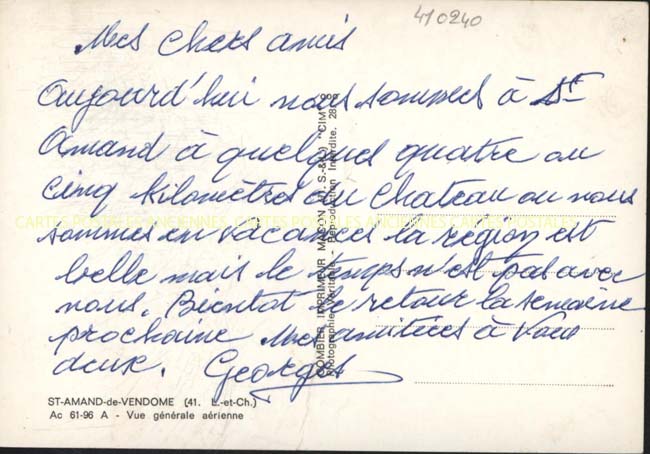 410240
Mes chers amis
Aujourd'hui nous sommes à St
Amand à quelques quatre ou
cinq kilomètres du Chateau ou nous
sommes en vacances la région est
belle mais le temps n'est pas avec
nous. Bientot le retour la semaine
prochaine Mes amitiées à vous
deux. Georges
CARTES POSTALES ANCIENNES CARTES POSTALES ANCIENNES CARTES POSTALES
COMBIER IMPRIMEUR MACON (S.-&-L.) "CIM"
Photographie Véritable - Reproduction Interdite.
ST-AMAND-de-VENDOME (41. L.-et-Ch.)
Ac 61-96 A - Vue générale aérienne